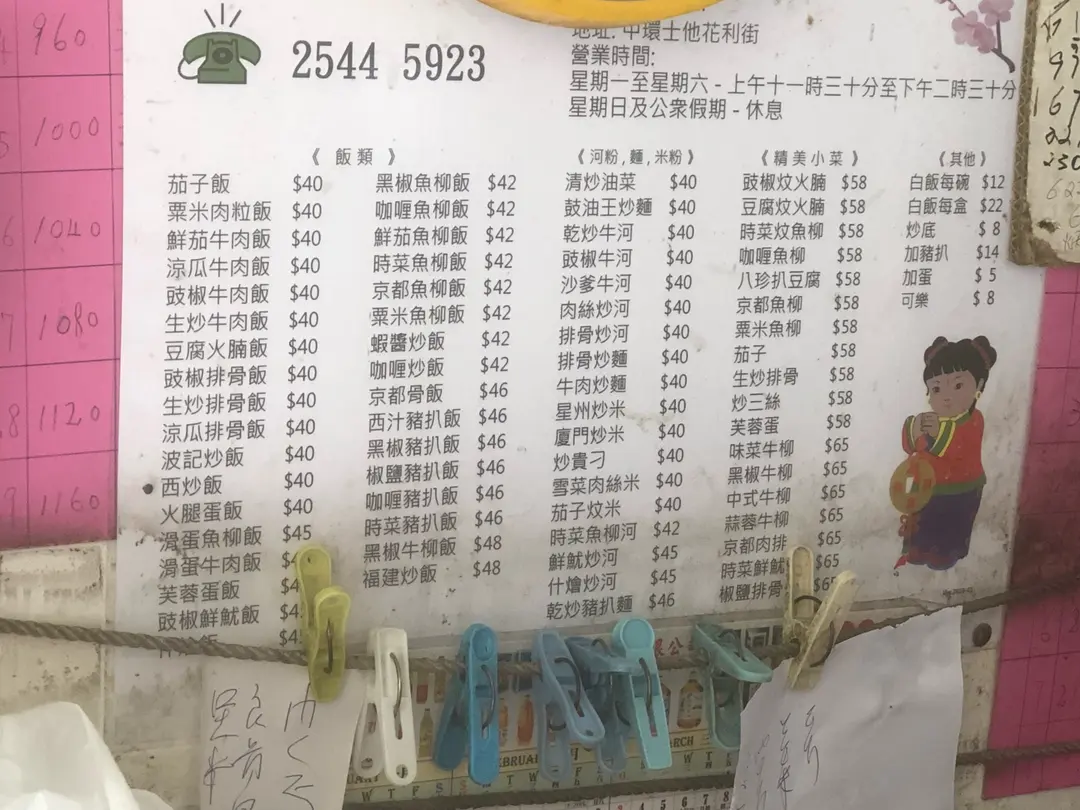 2544 5923
地址: 中環士他花利街
營業時間:
星期一至星期六 - 上午十一時三十分至下午二時三十分
星期日及公衆假期 - 休息
《 飯類 》
茄子飯 $40
粟米肉粒飯 $40
鮮茄牛肉飯 $40
涼瓜牛肉飯 $40
豉椒牛肉飯 $40
生炒牛肉飯 $40
豆腐火腩飯 $40
豉椒排骨飯 $40
生炒排骨飯 $40
涼瓜排骨飯 $40
波記炒飯 $40
西炒飯 $40
火腿蛋飯 $40
滑蛋魚柳飯 $45
滑蛋牛肉飯
芙蓉蛋飯
豉椒鮮魷飯
黑椒魚柳飯 $42
咖喱魚柳飯 $42
鮮茄魚柳飯 $42
時菜魚柳飯 $42
京都魚柳飯 $42
粟米魚柳飯 $42
蝦醬炒飯 $42
咖喱炒飯 $42
京都骨飯 $46
西汁豬扒飯 $46
黑椒豬扒飯 $46
椒鹽豬扒飯 $46
咖喱豬扒飯 $46
時菜豬扒飯 $46
黑椒牛柳飯 $48
福建炒飯 $48
《 河粉 , 麵 , 米粉 》
清炒油菜 $40
鼓油王炒麵 $40
乾炒牛河 $40
豉椒牛河 $40
沙爹牛河 $40
肉絲炒河 $40
排骨炒河 $40
排骨炒麵 $40
牛肉炒麵 $40
星州炒米 $40
廈門炒米 $40
炒貴刁 $40
雪菜肉絲米 $40
茄子炆米 $40
時菜魚柳河 $42
鮮魷炒河 $45
什燴炒河 $45
乾炒豬扒麵 $46
《 精美小菜 》
豉椒炆火腩 $58
豆腐炆火腩 $58
時菜炆魚柳 $58
咖喱魚柳 $58
八珍扒豆腐 $58
京都魚柳 $58
粟米魚柳 $58
茄子 $58
生炒排骨 $58
炒三絲 $58
芙蓉蛋 $58
味菜牛柳 $65
黑椒牛柳 $65
中式牛柳 $65
蒜蓉牛柳 $65
京都肉排 $65
時菜鮮魷 $65
椒鹽排骨 $65
《 其他 》
白飯每碗 $12
白飯每盒 $22
炒底 $ 8
加豬扒 $14
加蛋 $ 5
可樂 $ 8
960
1000
1040
1080
1120
1160